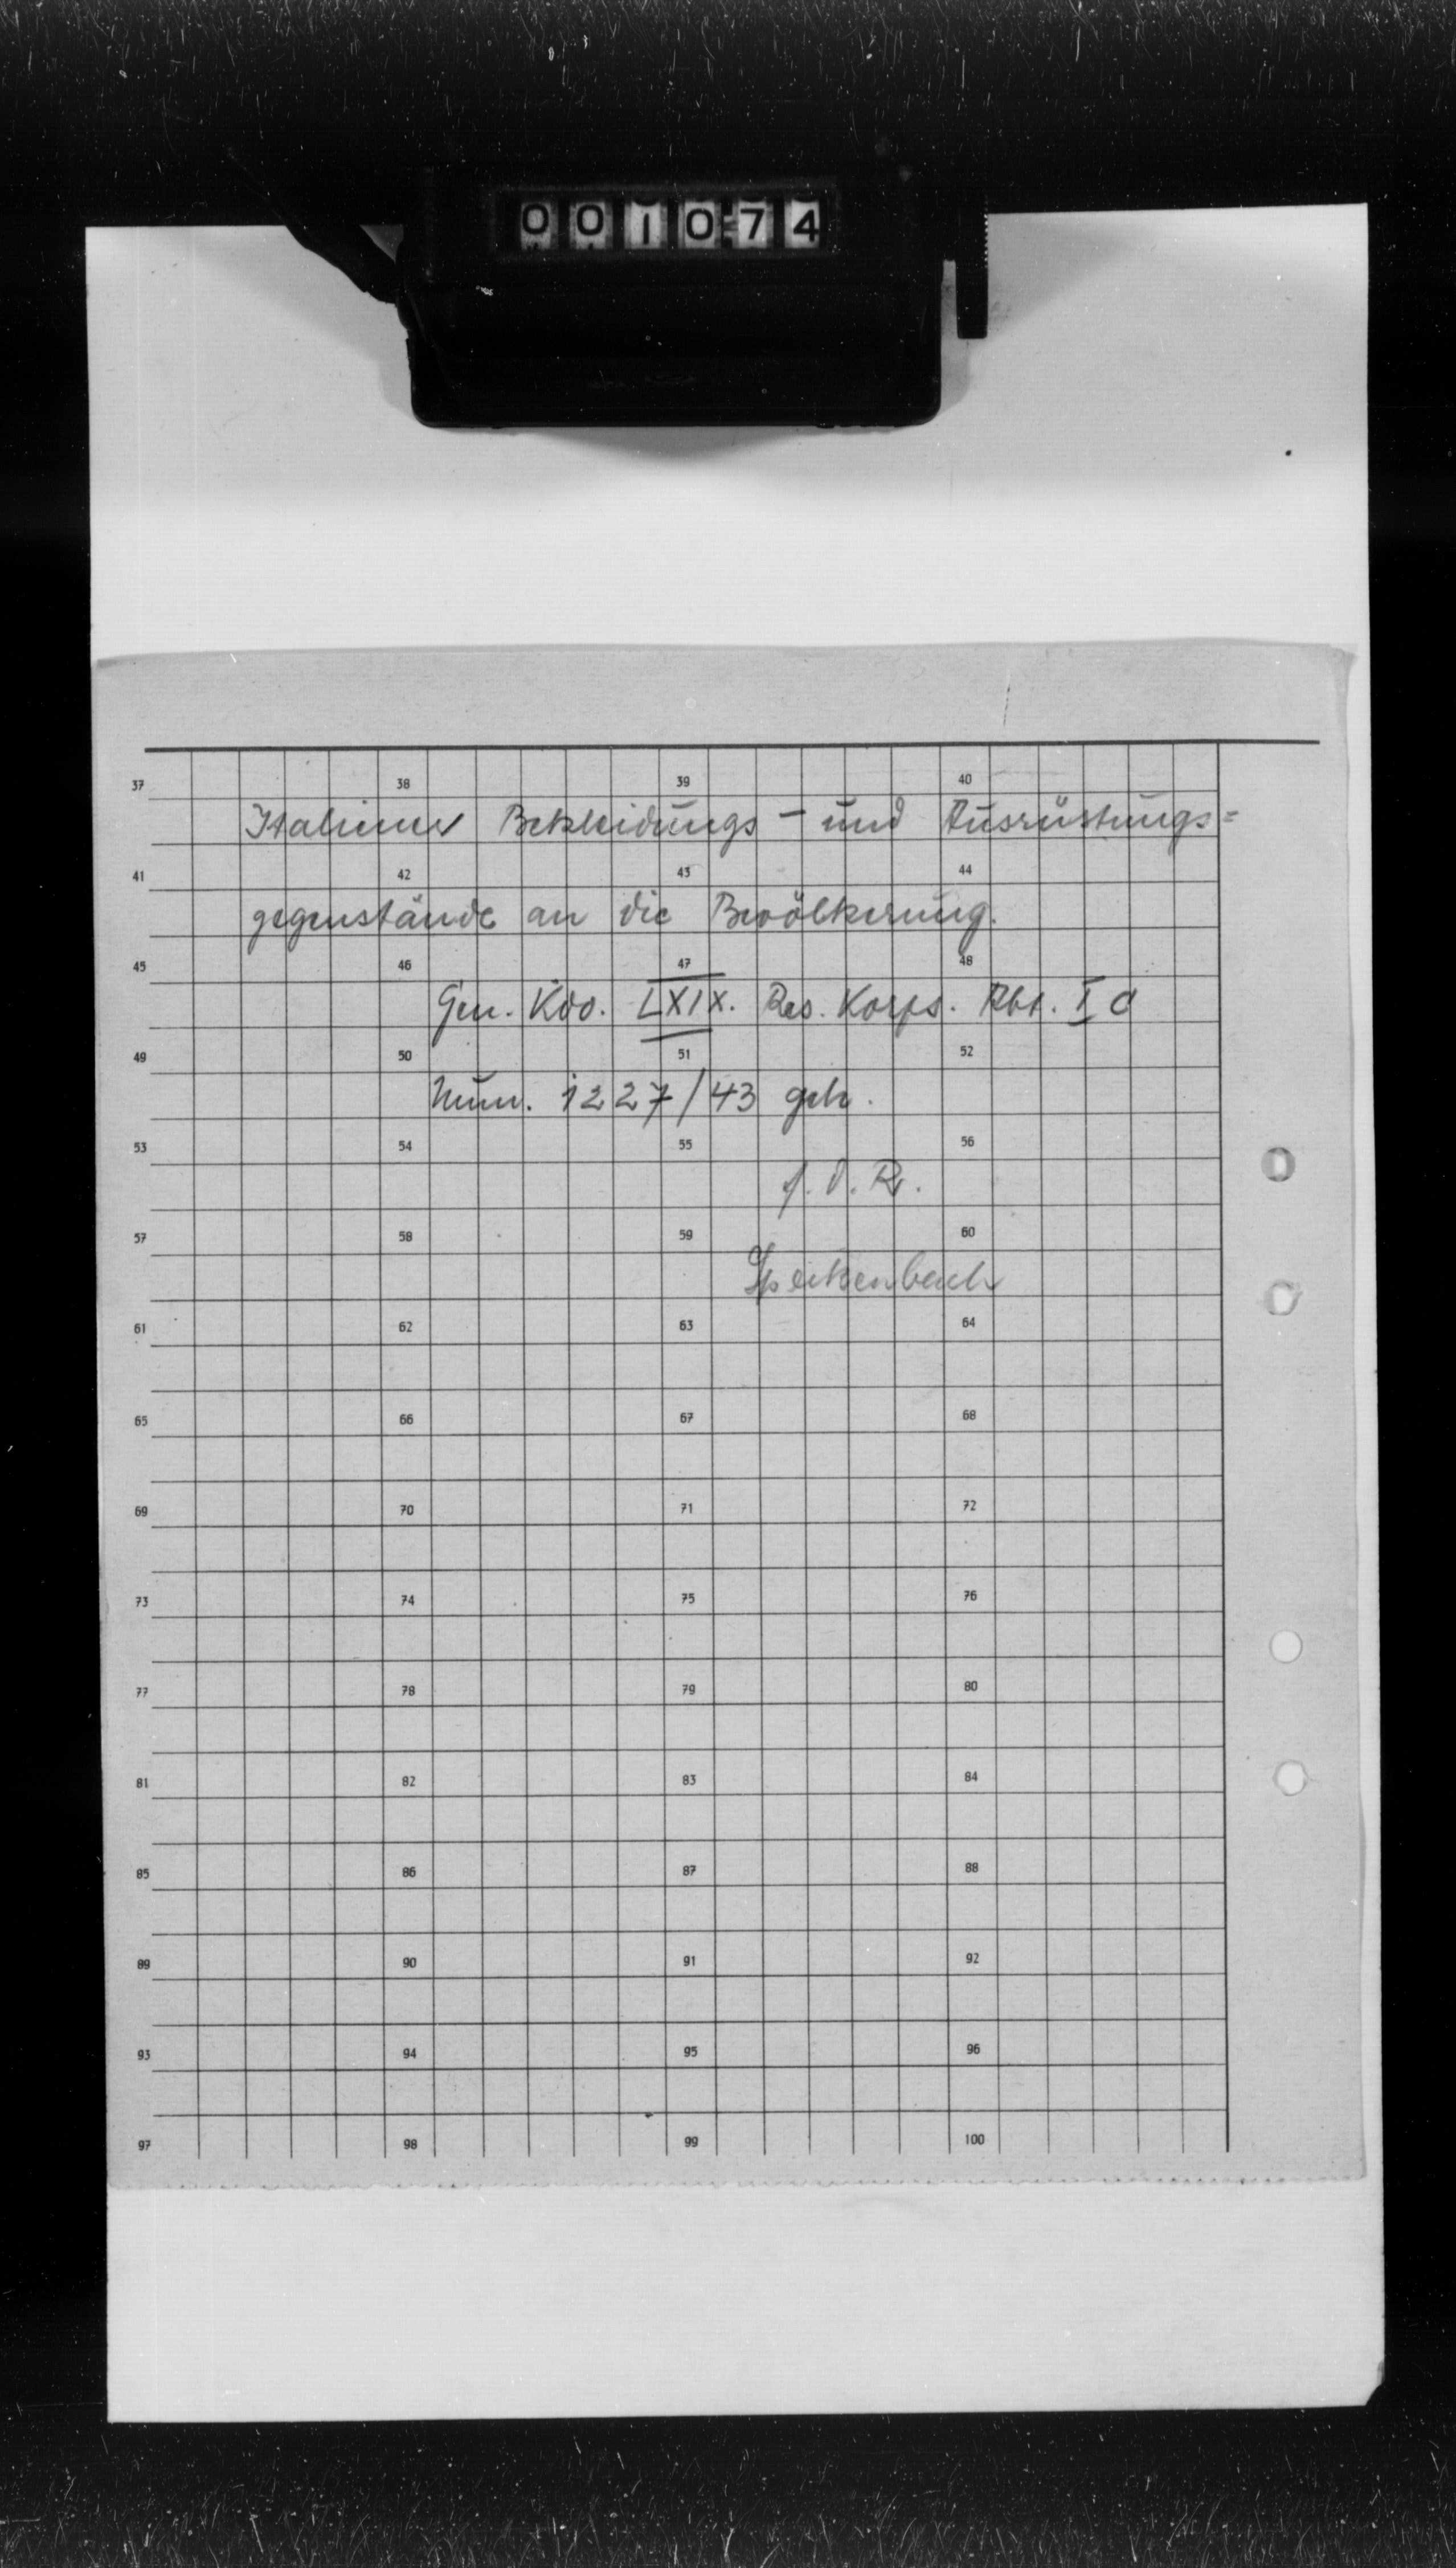 001074
37 38 39 40
Italiener Bekleidungs- und Ausrüstungs=
41 42 43 44
gegenstände an die Bevölkerung.
45 46 47 48
Gen. Kdo. LXIX. Res. Korps. Abt. I c
49 50 51 52
Num. 1227/43 geh.
53 54 55 56
f. d. R.
57 58 59 60
Speckenbach
61 62 63 64
65 66 67 68
69 70 71 72
73 74 75 76
77 78 79 80
81 82 83 84
85 86 87 88
89 90 91 92
93 94 95 96
97 98 99 100